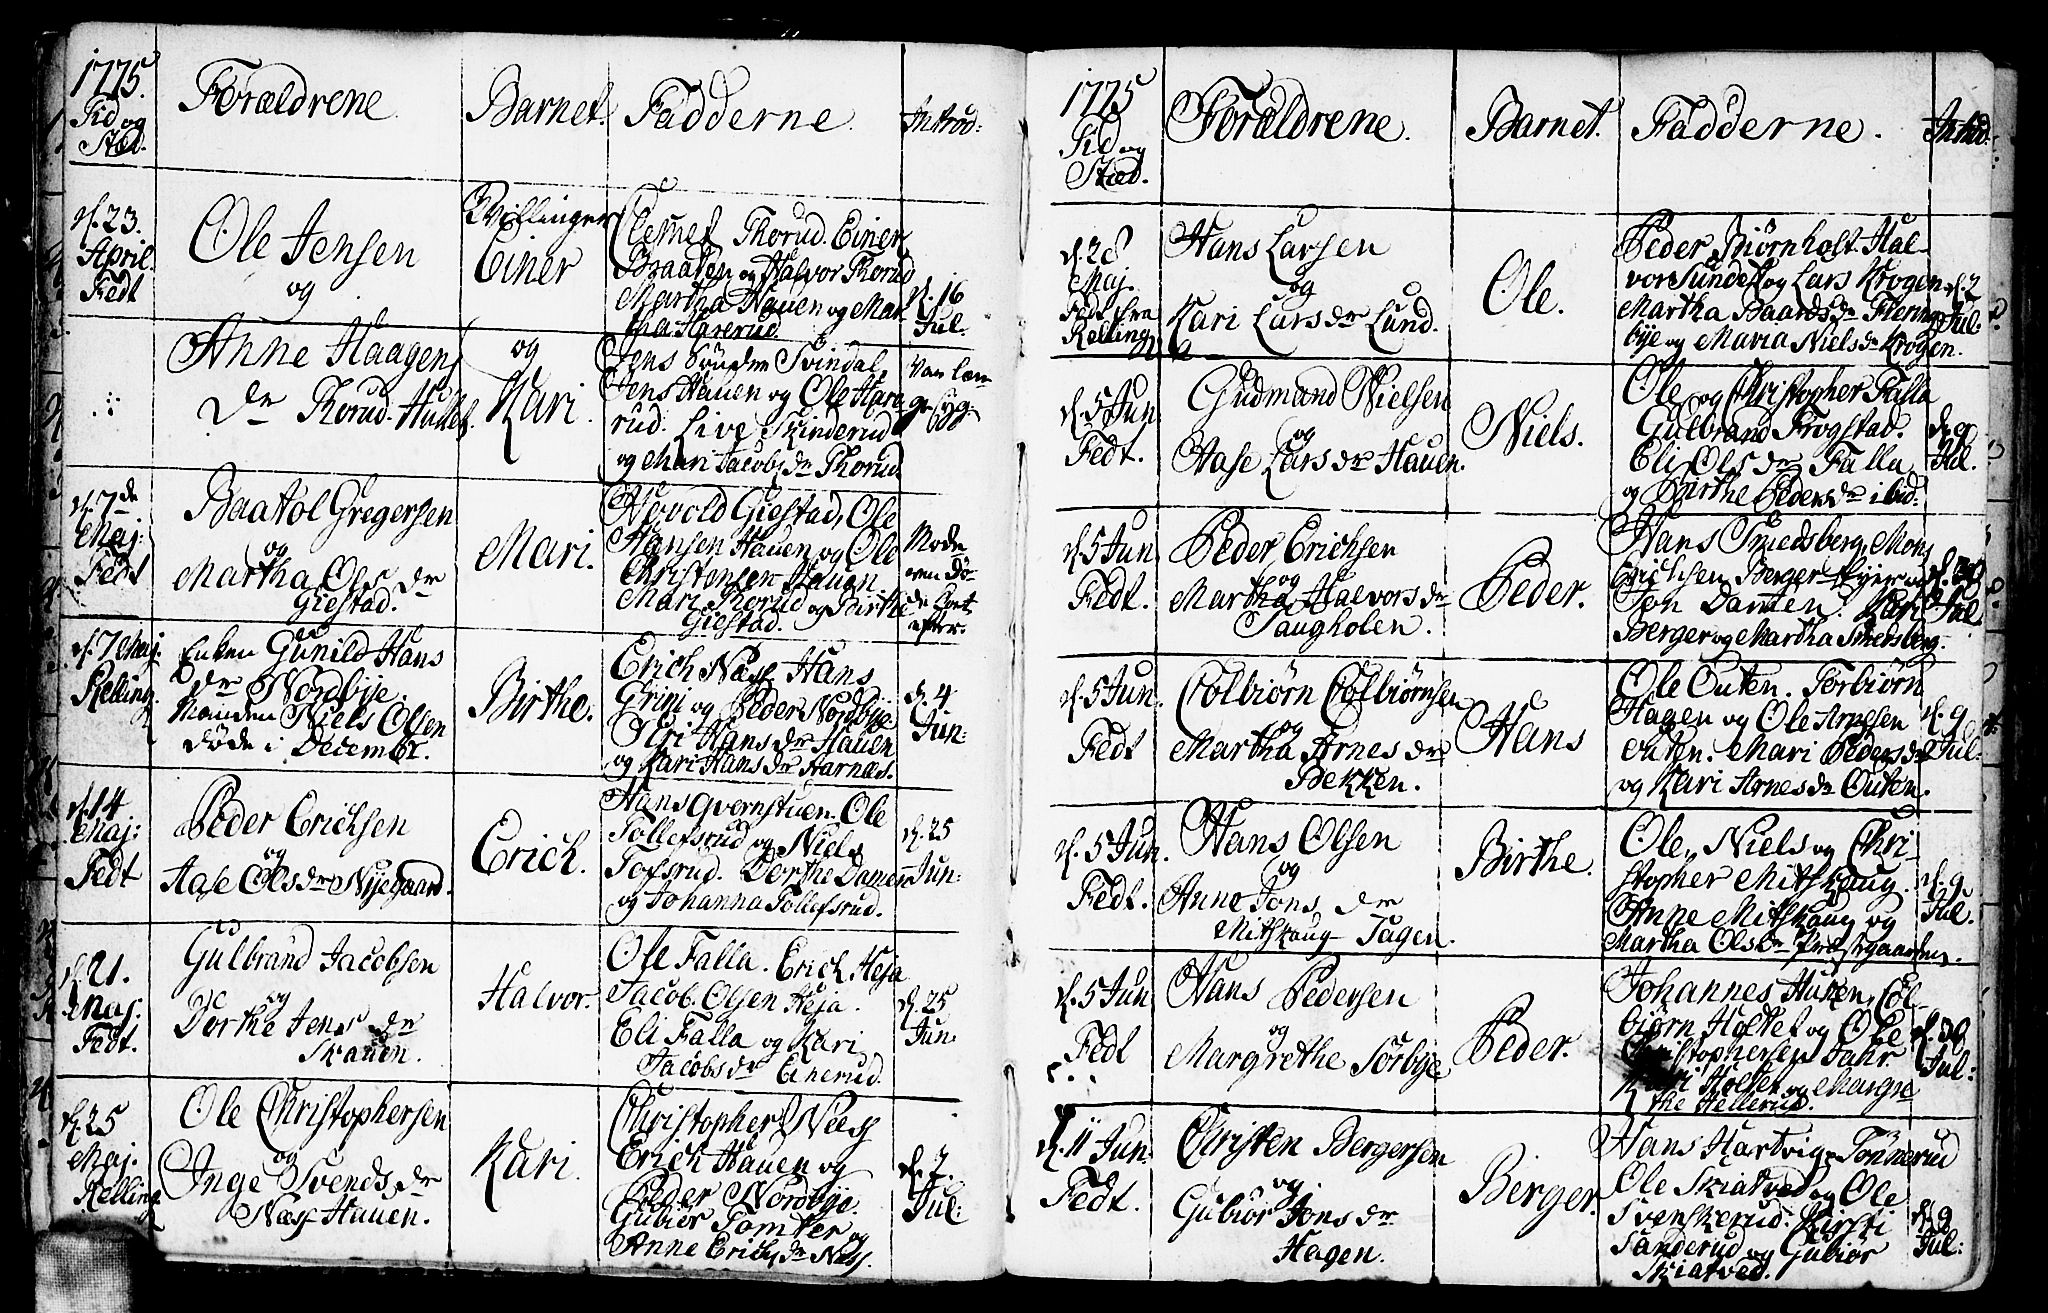 1775.
Tid og
Stæd.
Forældrene
Barnet.
Fadderne.
Introd:
d. 23.
April.
Fedt
Ole Jensen
og
Anne Haagens
Dr Thorud-Hullet.
Tvillinger
Einer
og
Kari.
Clemet Thorud. Einer
Braaten og Halvor Thorud
Martha Hauen og Mar-
tha Harerud.
Jens Sønden Svindal,
Jens Hauen og Ole Hare
rud. Live Skinderud
og Mari Jacobs dr Thorud.
d. 16
Jul.
Var læn-
ge syg.
d. 7de
Maj:
Fedt
Baatol Gregersen
og
Martha Ols dr
Giestad.
Mari.
Novold Giestad, Ole
Hansen Hauen og Ole
Christensen Hauen.
Mari Thorud og Birthe
Giestad.
Mode
ren dö-
de
efter.
d. 7 Maj.
Kelling.
Enken Gunild Hans
dr Nordbye.
Manden Niels Olsen
døde i December.
Birthe.
Erich Næss Hans
Grini og Peder Nordbye
Siri Hans dr Hauen
og Kari Hans dr Aarnæs.
d. 4
Jun:
d. 14
Maj:
Fedt
Peder Erichsen
og
Aase Ols dr Nyegaard.
Erich.
Hans Qvernstuen. Ole
Tollefsrud og Niels
Tofsrud. Dorthe Damen
og Johanna Tollefsrud.
d. 25
Jun:
d. 21.
Maj.
Fedt.
Gulbrand Jacobsen
og
Dorthe Jens dr
Skauen.
Halvor.
Ole Falla. Erich Heja
Jacob Olsen Heja.
Eli Falla og Kari
Jacobs dr Einerud.
d. 25
Jun:
d. 25
Maj.
Kelling
Ole Christophersen
og
Inge Svends dr
Næss Hauen.
Kari.
Christopher Næss
Erich Hauen og
Peder Nordbye.
Gubiør Tomter og
Anne Erichs dr Næss.
d. 2.
Jul:
1775
Tid og
Stæd.
Forældrene.
Barnet.
Fadderne.
Introd:
d. 28
Maj.
Fedt fra
Kelling
Hans Larsen
og
Kari Lars dr Lund.
Ole.
Peder Biørnholt Hal-
vor Sundet og Lars Krogen
Martha Baards dr Flering
bye og Maria Niels dr Krogen.
d. 2
Jul:
d. 5 Jun
Fedt.
Gudmund Nielsen
og
Aase Lars dr Hauen.
Niels.
Ole og Christopher Falla
Gulbrand Frogstad.
Eli Ols dr Falla
og Birthe Peders dr ibid.
d. 9
Jul.
d. 5 Jun
Fedt.
Peder Erichsen
og
Martha Halvors dr
Saugholen.
Peder.
Hans Smedsberg, Mons
Erichsen Berger
Jon Damen. Kari
Berger og Martha Smedsberg.
Jul
d. 5 Jun.
Fedt
Colbiørn Colbiørnsen
og
Martha Arnes dr
Bekken.
Hans
Ole Outen. Torbiørn
Hagen og Ole Arnesen
Outen. Mari Peders dr
og Kari Arnes dr Outen.
d. 9
Jul:
d. 5 Jun.
Fedt.
Hans Olsen
og
Anne Jons dr
Mitskaug-Jagen.
Birthe.
Ole, Niels og Chri-
stopher Mitskaug.
Anne Mitskaug og
Martha Ols dr Præstgaarden.
d. 9
Jul.
d. 5 Jun
Fedt
Hans Pedersen
og
Margrethe Sørbye
Peder.
Johannes Huken, Col-
biørn Holtet og Ole
Christophersen Fahr.
Kari Holtet og Margre
the Hellerud.
d. 30
Jul:
d. 11 Jun.
Fedt.
Christen Bergersen
og.
Gubiør Jons dr
Hagen.
Berger.
Hans Hartvig-Tönnerud
Ole Skiatved og Ole
Svenskerud. Kirsti
Sanderud og Gubiør
Skiatved.
d. 9
Jul: